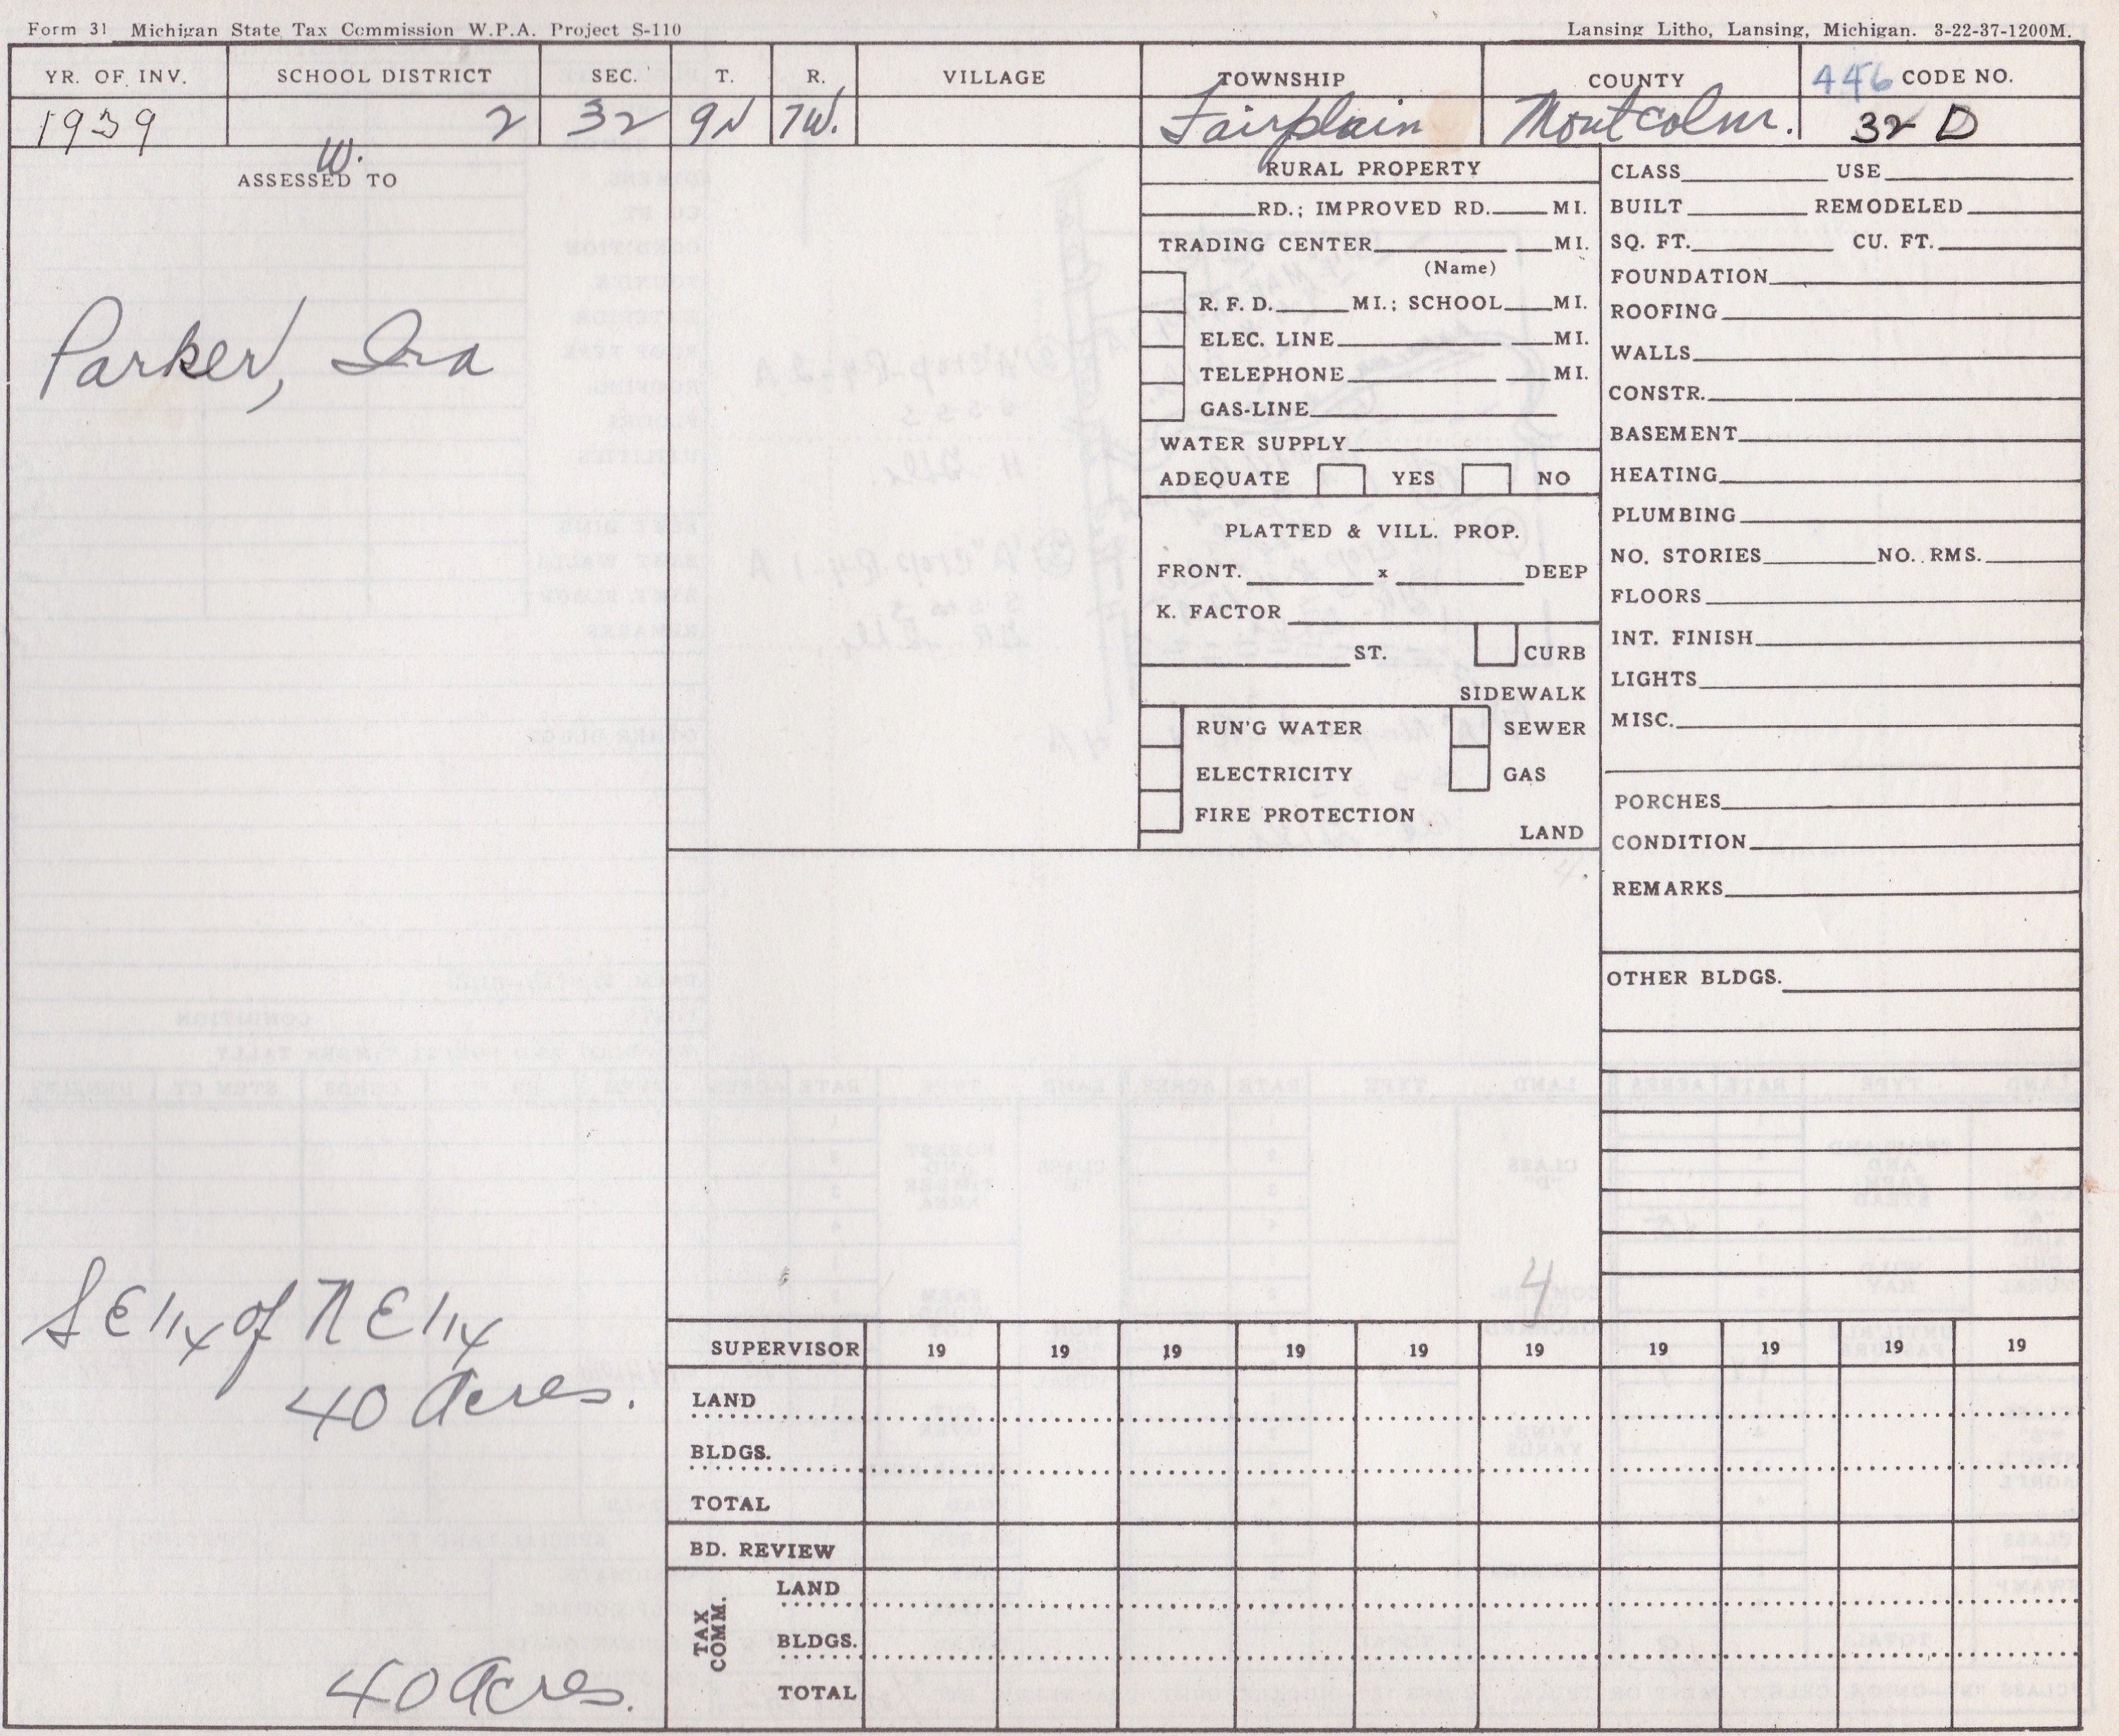 Form 31 Michigan State Tax Commission W.P.A. Project S-110
Lansing Litho, Lansing, Michigan. 3-22-37-1200M.
YR. OF INV. SCHOOL DISTRICT SEC. T. R. VILLAGE TOWNSHIP COUNTY 446 CODE NO.
1939 2 32 9N 7W. Fairplain Montcalm. 32 D
W.
ASSESSED TO
Parker, Ira
SE 1/4 of NE 1/4
40 Acres.
40 Acres.
RURAL PROPERTY
RD.; IMPROVED RD. MI.
TRADING CENTER MI.
(Name)
R.F.D. MI.; SCHOOL MI.
ELEC. LINE MI.
TELEPHONE MI.
GAS-LINE
WATER SUPPLY
ADEQUATE YES NO
PLATTED & VILL. PROP.
FRONT. x DEEP
K. FACTOR
ST. CURB
SIDEWALK
RUN'G WATER SEWER
ELECTRICITY GAS
FIRE PROTECTION
LAND
4
CLASS USE
BUILT REMODELED
SQ. FT. CU. FT.
FOUNDATION
ROOFING
WALLS
CONSTR.
BASEMENT
HEATING
PLUMBING
NO. STORIES NO. RMS.
FLOORS
INT. FINISH
LIGHTS
MISC.
PORCHES
CONDITION
REMARKS
OTHER BLDGS.
SUPERVISOR 19 19 19 19 19 19 19 19 19 19
LAND
BLDGS.
TOTAL
BD. REVIEW
TAX COMM.
LAND
BLDGS.
TOTAL